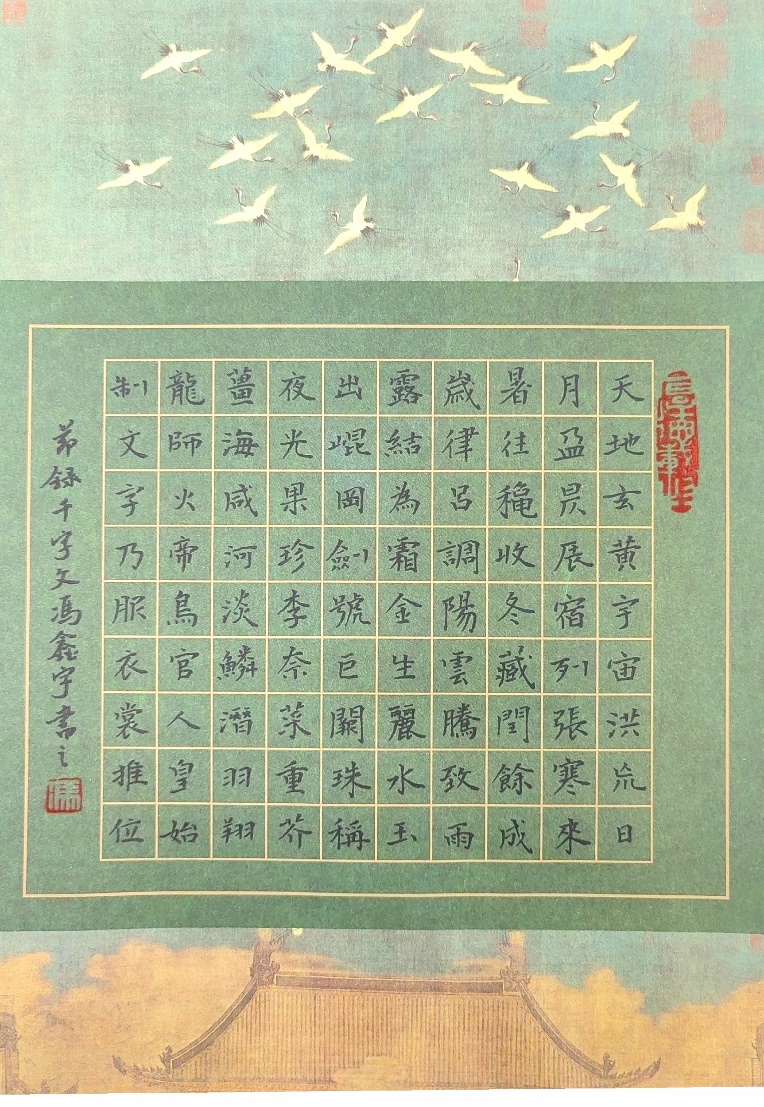 天地玄黃宇宙洪荒日
月盈昃辰宿列張寒來
暑往穐收冬藏閏餘成
歲律呂調陽雲騰致雨
露結為霜金生麗水玉
出崐岡劍號巨闕珠稱
夜光果珍李柰菜重芥
薑海咸河淡鱗潛羽翔
龍師火帝鳥官人皇始
制文字乃服衣裳推位
節録千字文馮鑫宇書之